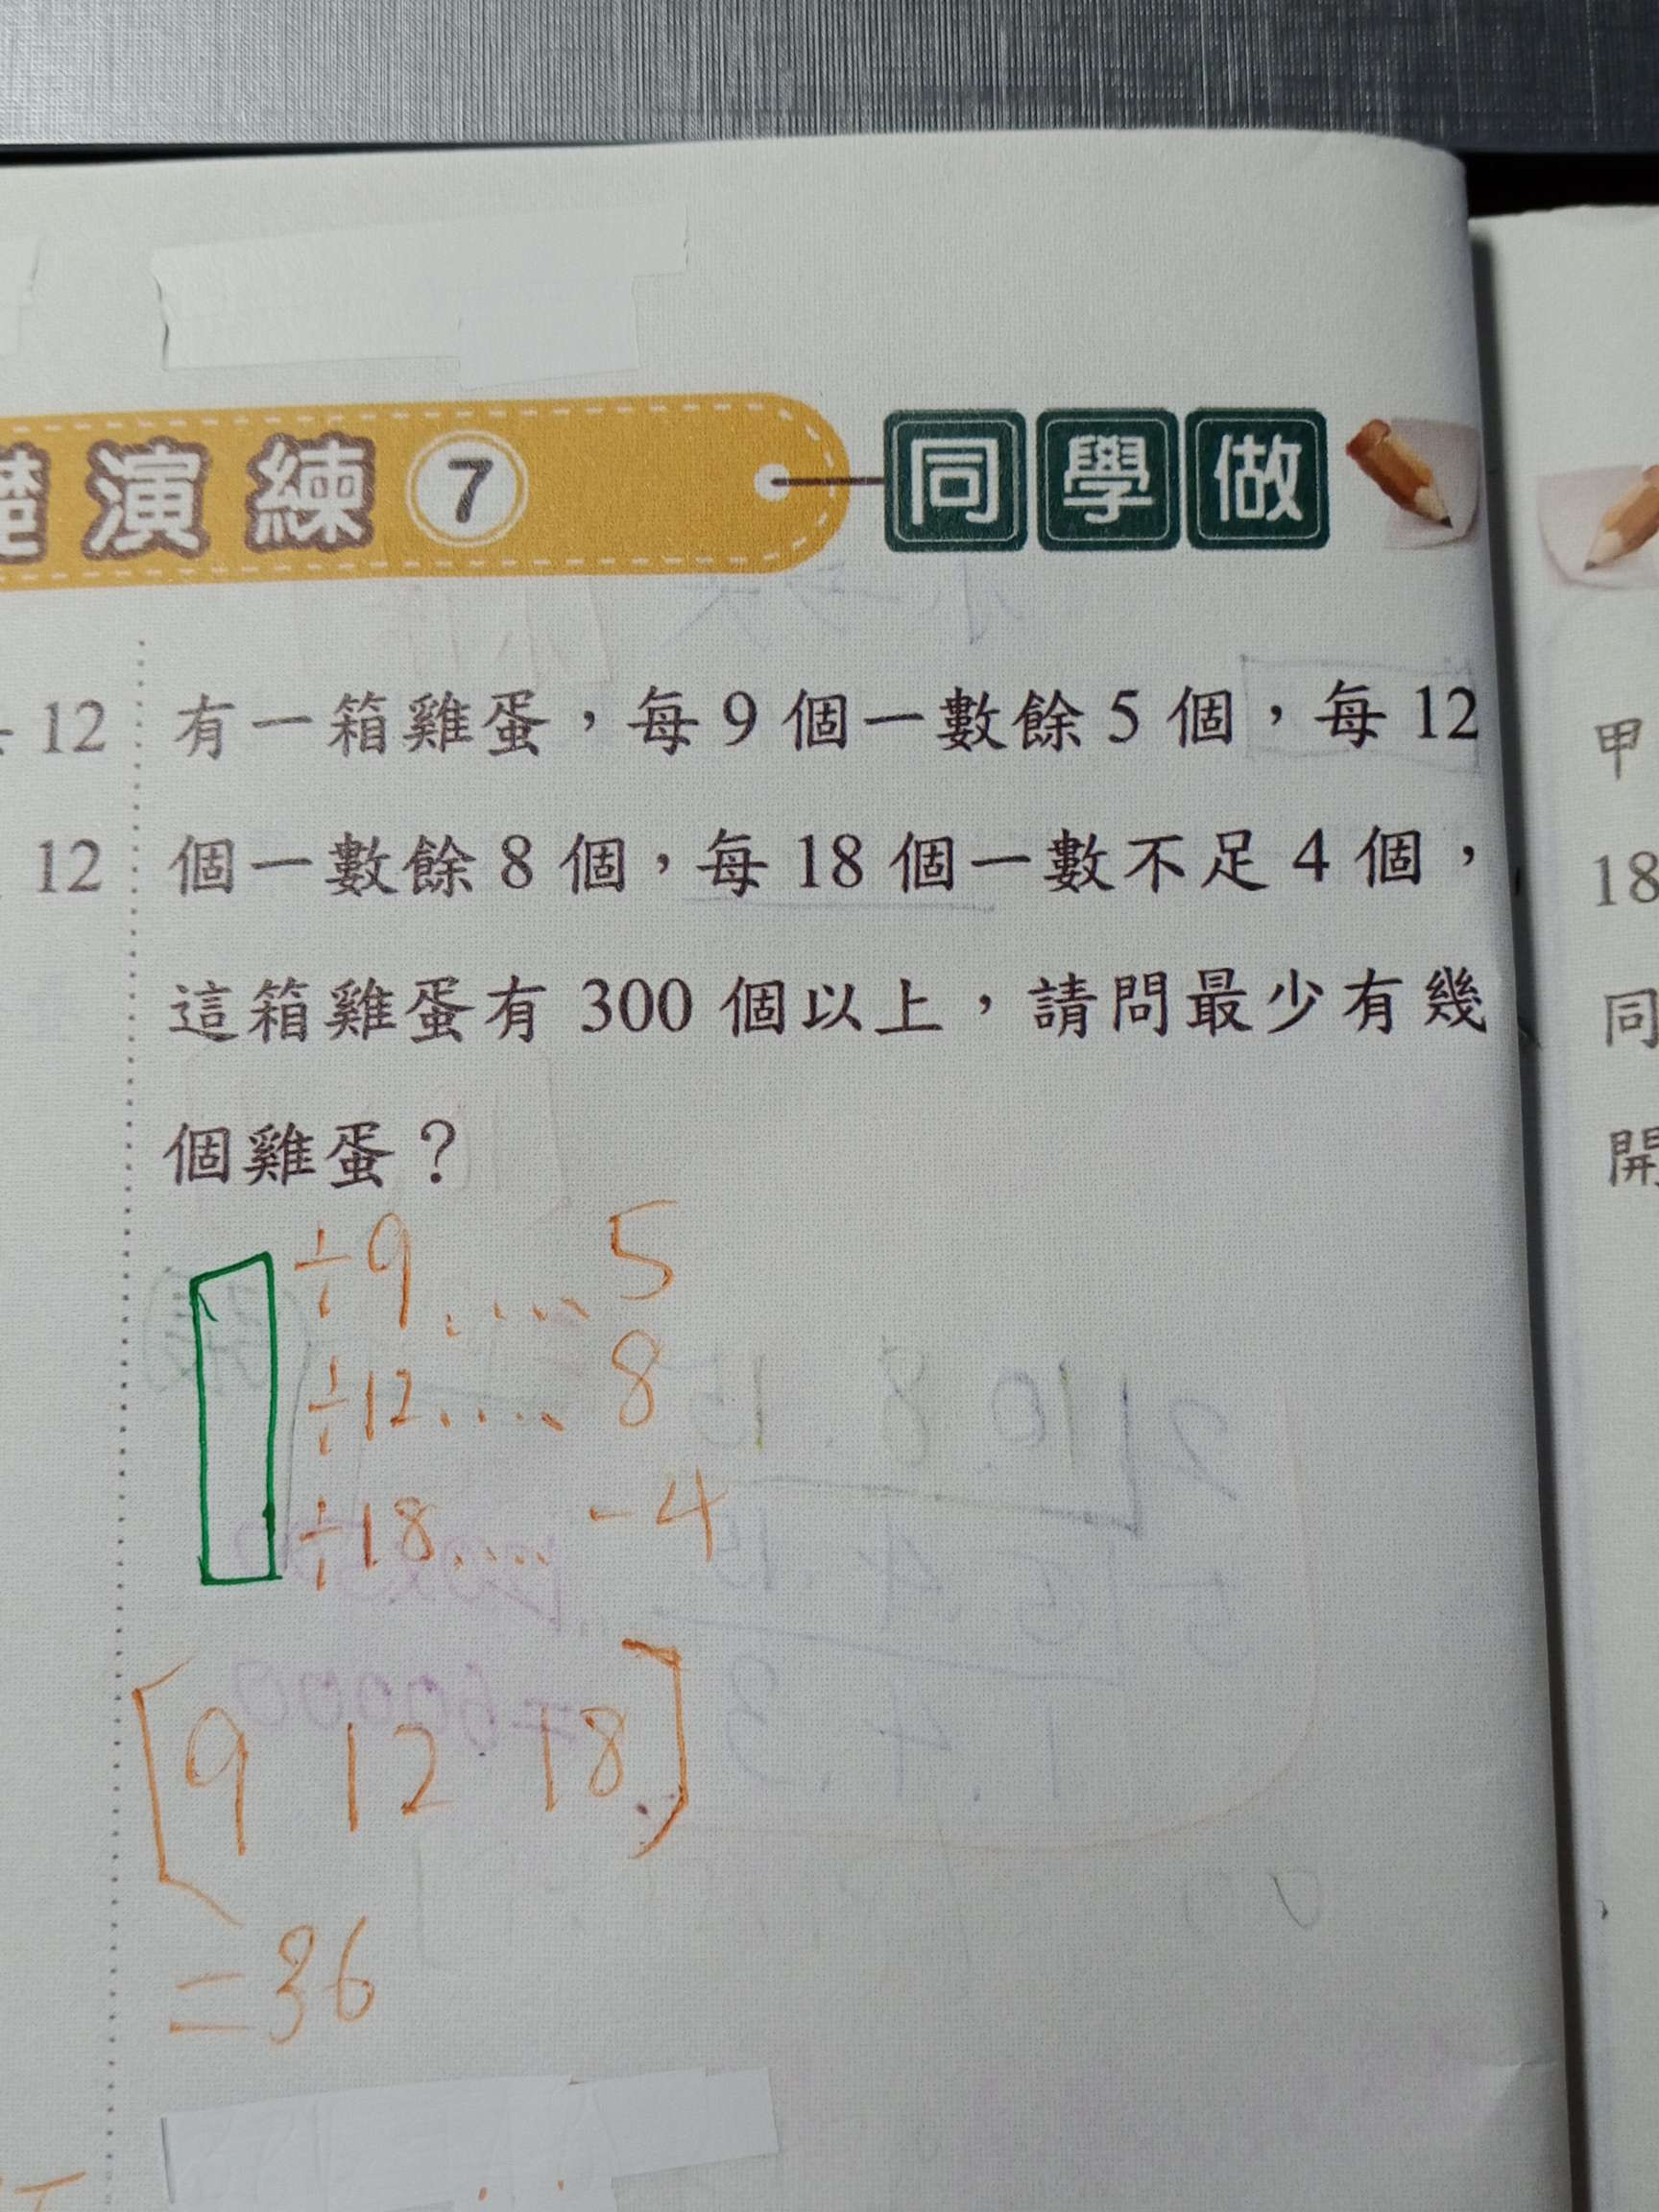 演練 7 同學做
12 有一箱雞蛋，每 9 個一數餘 5 個，每 12 甲
12 個一數餘 8 個，每 18 個一數不足 4 個， 18
這箱雞蛋有 300 個以上，請問最少有幾 同
個雞蛋？ 開
÷9..... 5
÷12..... 8
÷18..... -4
[9 12 18]
=36